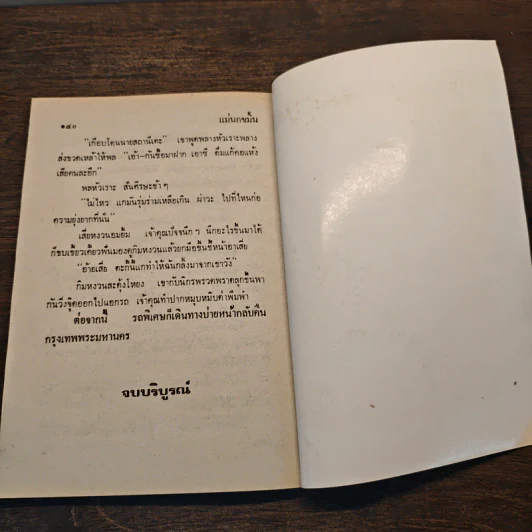 ๑๔๐ แม่นกขมิ้น
"เกือบโดนนายสถานีเตะ" เขาพูดพลางหัวเราะพลาง
ส่งขวดเหล้าให้พล "เอ้า-กันซื้อมาฝาก เอาซี ดื่มแก้คอแห้ง
เสียคนละอึก"
พลหัวเราะ สั่นศีรษะช้า ๆ
"ไม่ไหว แกมันรุ่มร่ามเหลือเกิน ผ่าวะ ไปที่ไหนก่อ
ความยุ่งยากที่นั่น"
เสี่ยหงวนอมยิ้ม เจ้าคุณปัจจนึก ๆ นึกอะไรขึ้นมาได้
ก็ขบเขี้ยวเคี้ยวฟันมองดูกิมหงวนแล้วยกมือขึ้นชี้หน้าอาเสี่ย
"อ้ายเสี่ย ตะกี้นี้แกทำให้ฉันกลิ้งมาจากเขาวัง"
กิมหงวนสะดุ้งโหยง เขากับนิกรพรวดพราดลุกขึ้นพา
กันวิ่งจู๊ดออกไปนอกรถ เจ้าคุณทำปากหมุบหมิบด่าพึมพำ
ต่อจากนี้ รถพิเศษก็เดินทางบ่ายหน้ากลับคืน
กรุงเทพพระมหานคร
จบบริบูรณ์